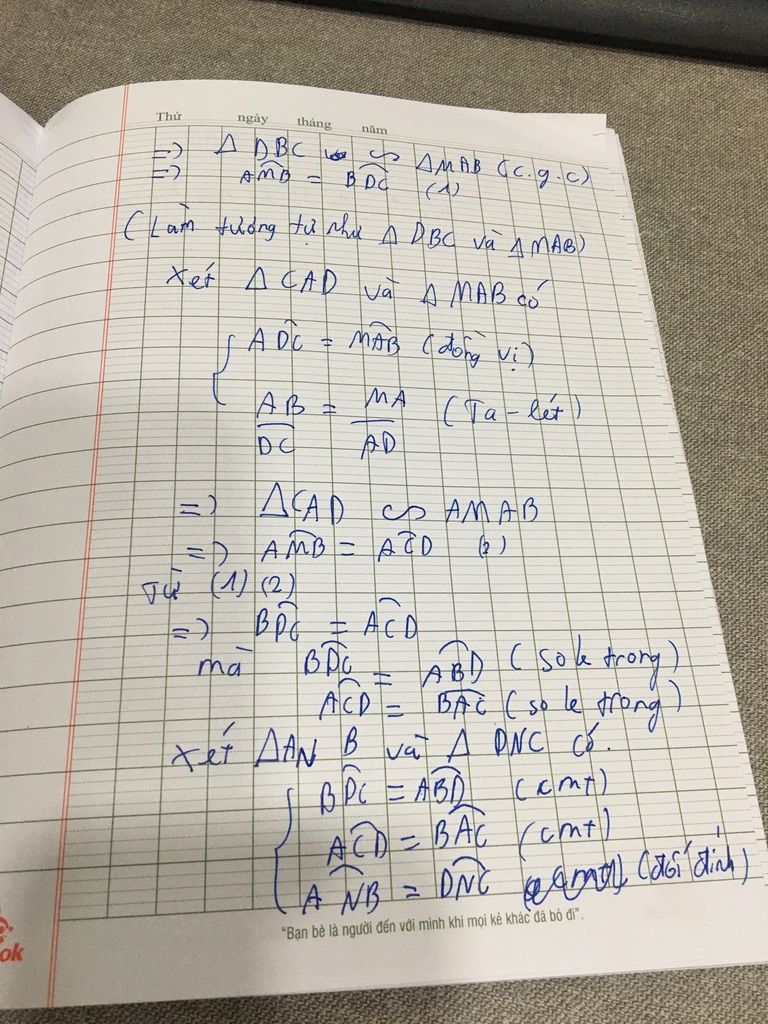 Thứ ngày tháng năm
=> Δ DBC ∽ ΔMAB (c.g.c)
=> AMB = BDC (1)
(Làm tương tự như Δ DBC và Δ MAB)
Xét Δ CAD và Δ MAB có
ADC = MAB (đồng vị)
AB/DC = MA/AD (Ta-lét)
=> ΔCAD ∽ ΔMAB
=> AMB = ACD (2)
Từ (1) (2)
=> BDC = ACD
mà BDC = ABD (so le trong)
ACD = BAC (so le trong)
Xét ΔANB và Δ DNC có.
BDC = ABD (cmt)
ACD = BAC (cmt)
ANB = DNC (đối đỉnh)
"Bạn bè là người đến với mình khi mọi kẻ khác đã bỏ đi".
ok